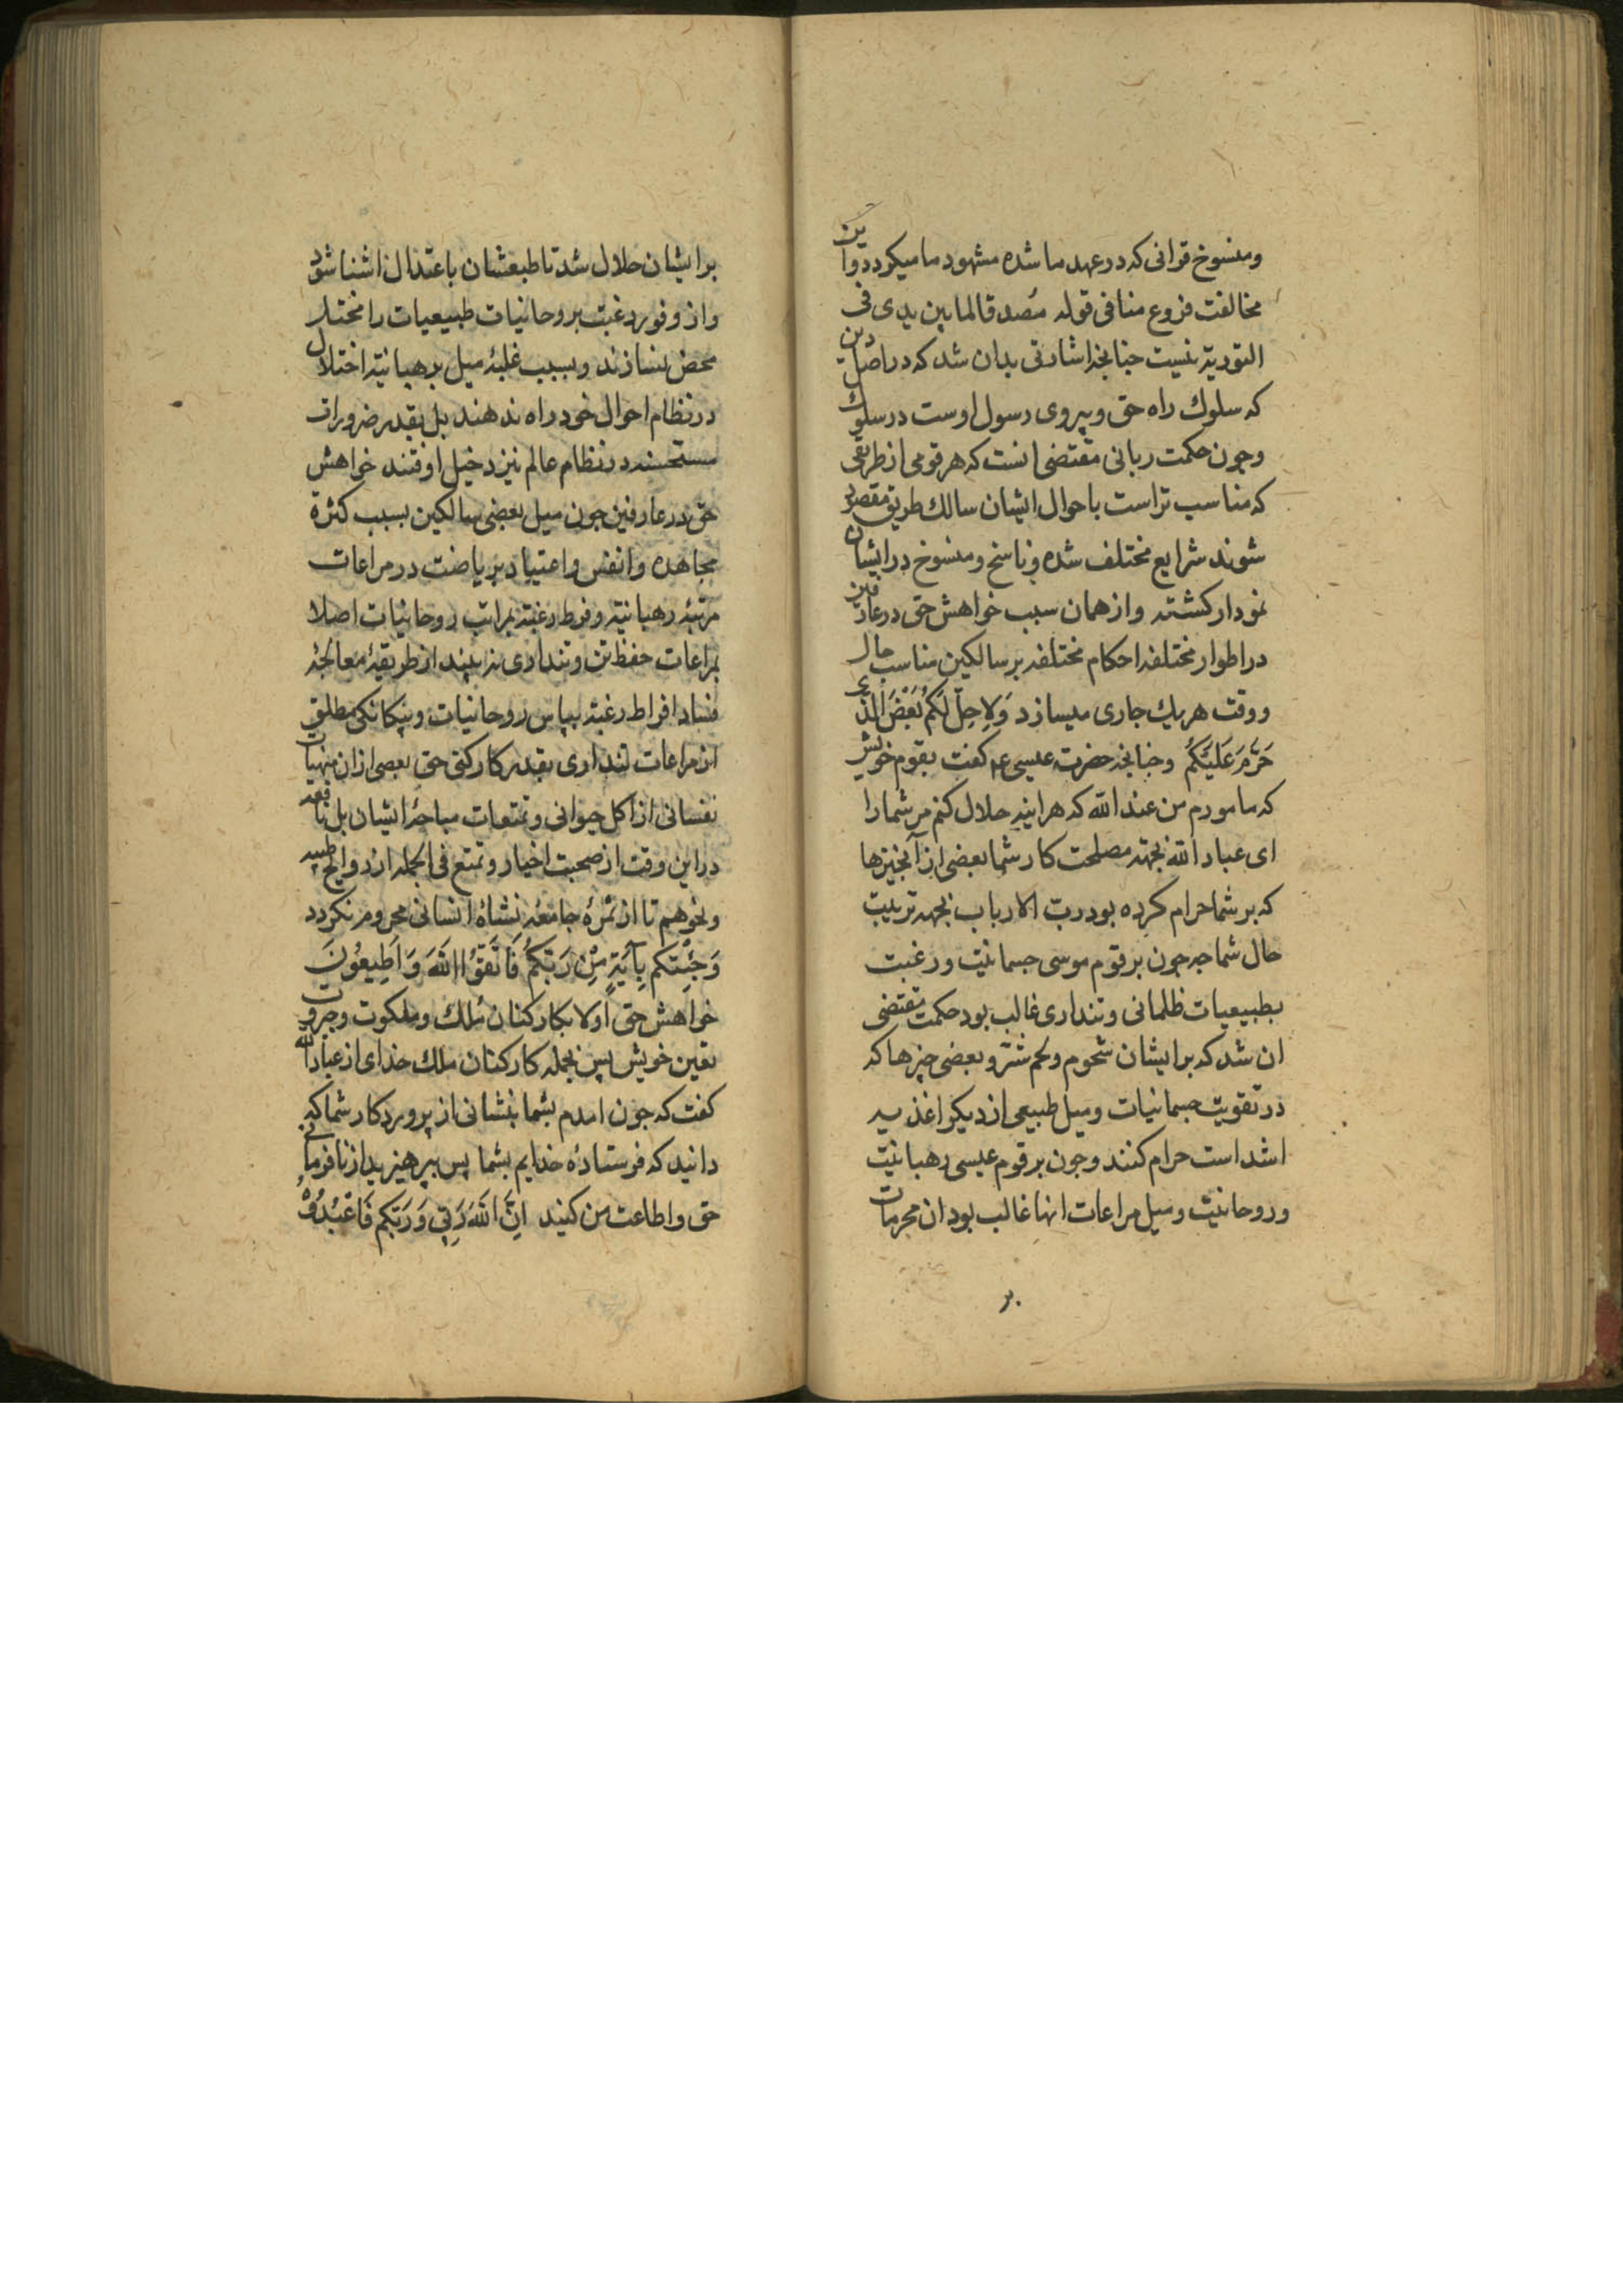 ومنسوخ قرانی که در عهد ما شده مشهود ما میکردد واین
مخالفت فروع منافی قوله مُصدقا لما بین یدی فی
التوریة نیست جنانجه اشارتی بدان شد که در اصل دین
که سلوك راه حق و پیروی رسول اوست در سلوك
وجون حکمت ربانی مقتضی انست که هر قومی از طریقی
که مناسب تر است باحوال ایشان سالك طریق مقصد
شوند شرایع مختلف شده و ناسخ و منسوخ در ایشان
نمودار کشته واز همان سبب خواهش حق در عارفین
در اطوار مختلفه احکام مختلفه بر سالکین مناسب حال
ووقت هریك جاری میسازد وَلِاحِلّ لَکُم بَعْضَ الَّذی
حَرِّمَ عَلَیْکُم وجنانجه حضرت عیسی ع کفت بقوم خویش
که مامورم من عند الله که هراینه حلال کنم مر شما را
ای عباد الله بجهة مصلحت کار شما بعضی از آنجیزها
که بر شما حرام کرده بود رب الارباب بجهة تربیت
حال شما جه جون بر قوم موسی جسمانیت ورغبت
بطبیعیات ظلمانی وتنداری غالب بود حکمت مقتضی
ان شد که بر ایشان شحوم ولحم شتر و بعضی جیزها که
در تقویت جسمانیات ومیل طبیعی از دیکر اغذیه
اشد است حرام کنند وجون بر قوم عیسی رهبانیت
وروحانیت ومیل مراعات انها غالب بود ان محرمات
بر ایشان حلال شد تا طبعشان باعتدال اشنا شود
واز وفور رغبت بروحانیات طبیعیات را مختل
محض نسازند وبسبب غلبهٔ میل برهبانیة اختلال
در نظام احوال خود راه ندهند بل بقدر ضرورات
مستحسنه در نظام عالم نیز دخیل اوفتند خواهش
حق در عارفین جون میل بعضی سالکین بسبب کثرة
مجاهده وانفس واعتیاد بریاضت در مراعات
مرتبهٔ رهبانیة وفرط رغبة بمراتب روحانیات اصلا
بمراعات حفظ تن وتنداری نه بیند از طریقهٔ معالجهٔ
فساد افراط رغبة بپاس روحانیات وبیکانکی مطلق
از مراعات تنداری بقدر کارکنی حق بعضی ازان منهیات
نفسانی از اکل حیوانی وتمتعات مباحهٔ ایشان بل نافعه
در این وقت از صحبت اخیار وتمتع فی الجمله از روایح طیبه
ونحوهم تا از ثمرهٔ جامعهٔ نشاهٔ انسانی محروم نکردد
وَجِئْتُکم بِآیَةٍ مِنْ رَبِّکُم فَاتَّقُوا اللّهَ وَاَطِیعُونَ
خواهش حق اولا بکارکنان مُلك وملکوت وجبروت
تعین خویش پس بجمله کارکنان ملك خدای از عباد الله
کفت که جون امدم بشما بنشانی از پروردکار شما که
دانید که فرستادهٔ خدایم بشما پس بپرهیزید از نافرمانی
حق واطاعت من کنید اِنَّ اللّهَ رَبّی وَرَبُّکُم فَاعْبُدُوهُ